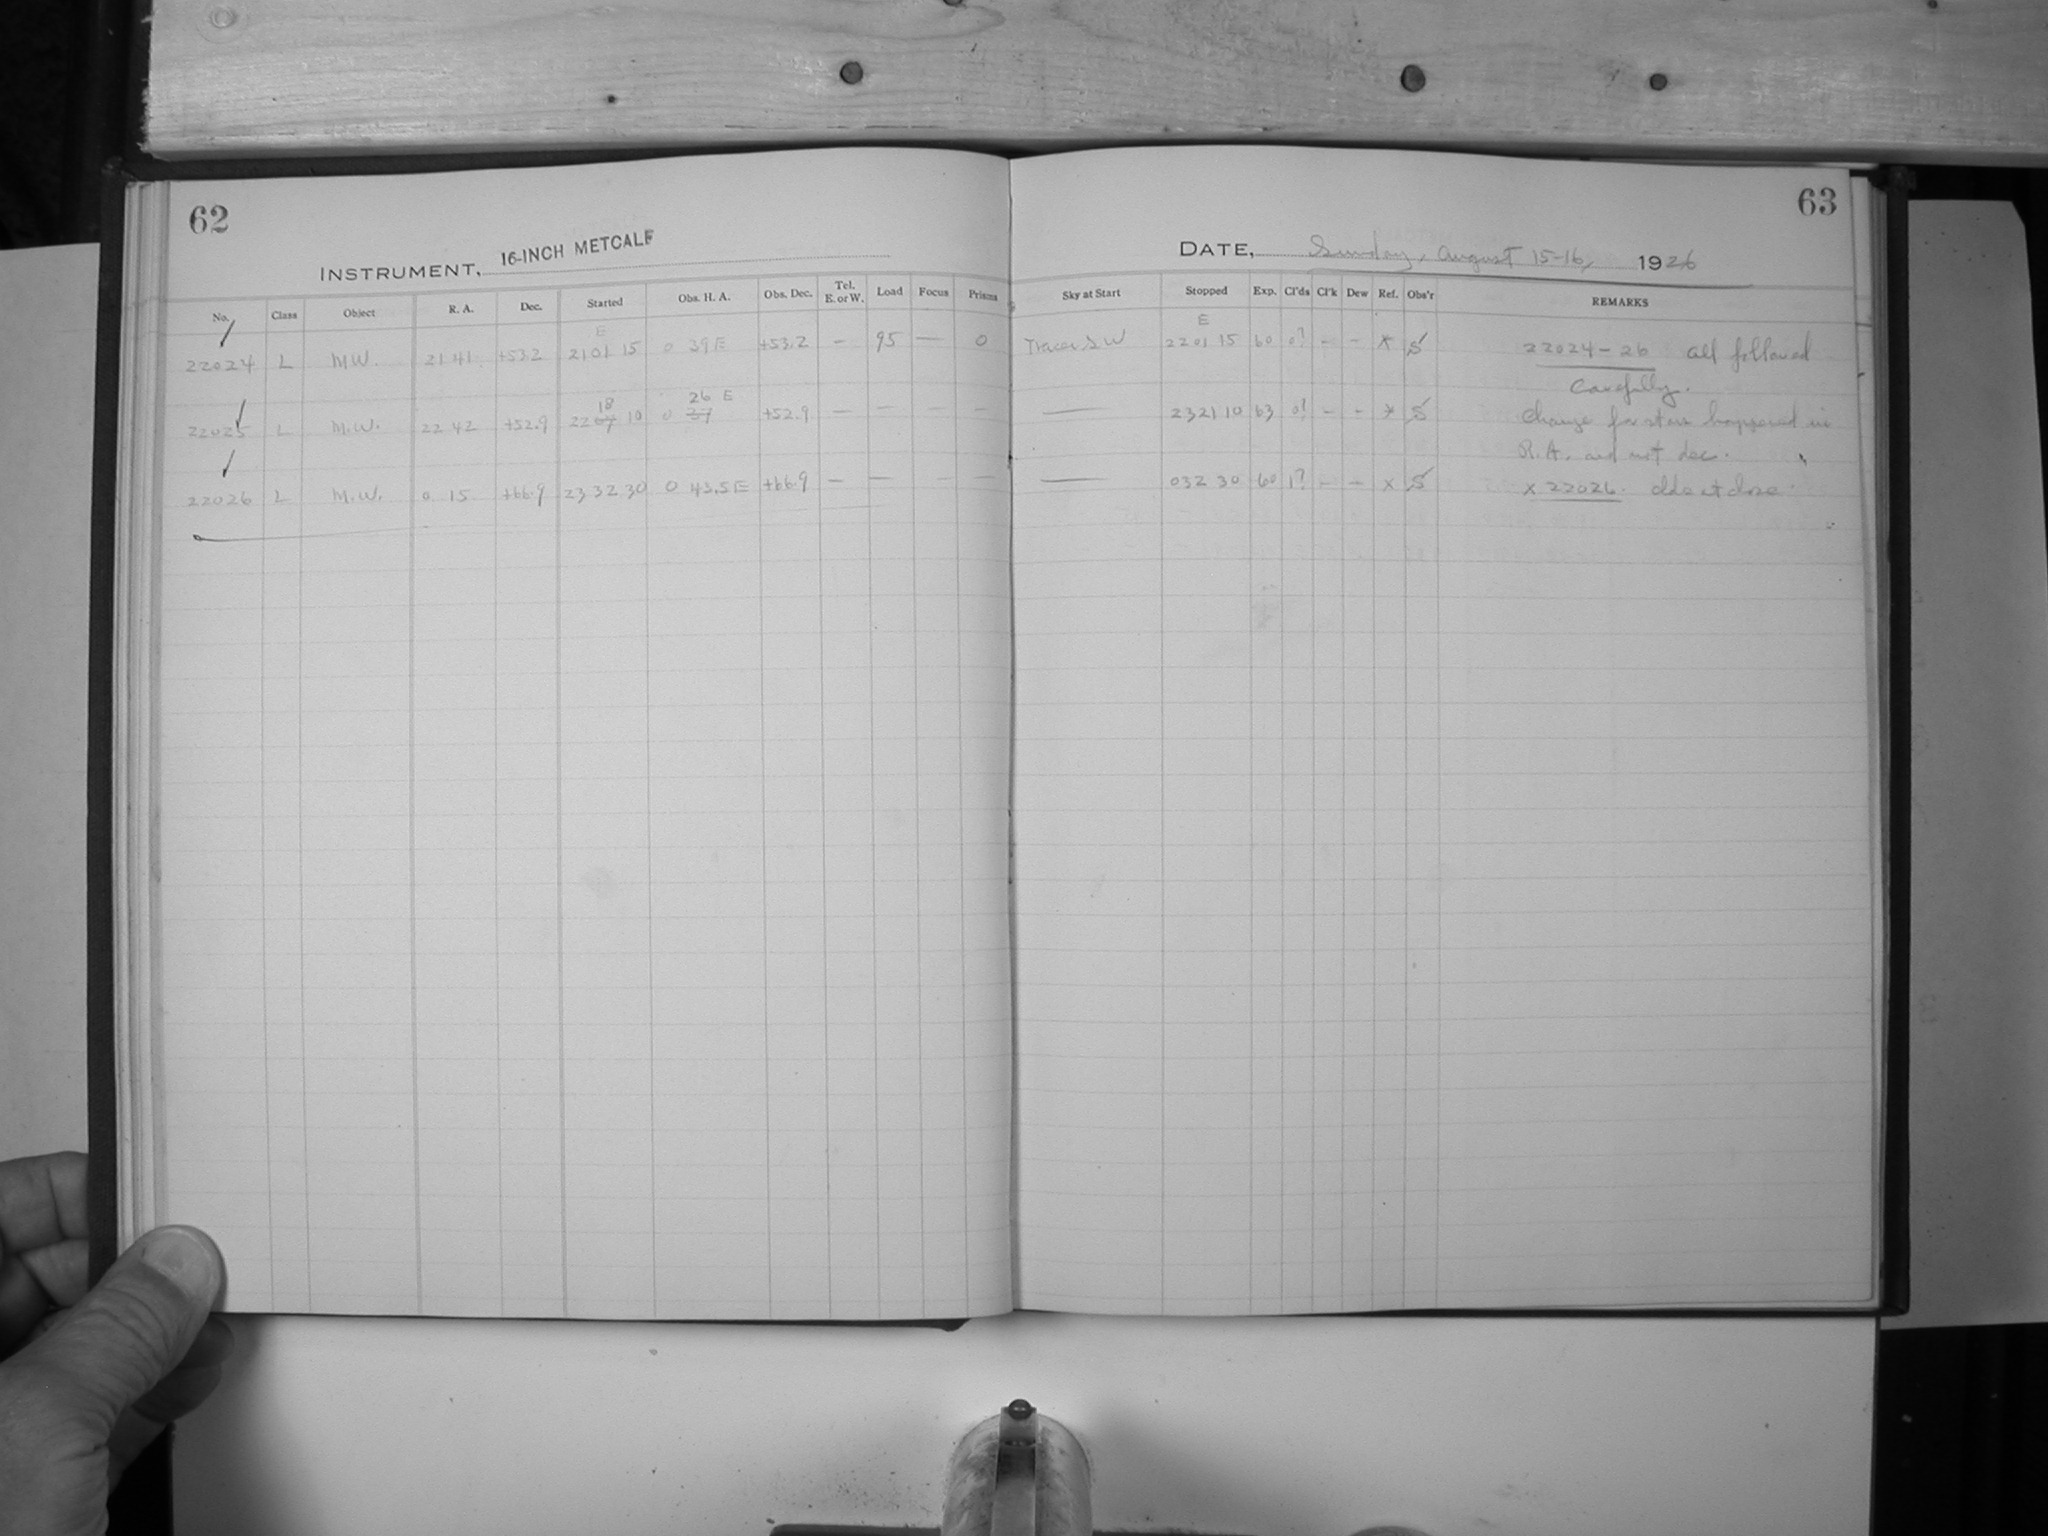 62
INSTRUMENT, 16-INCH METCALF
No. Class Object R. A. Dec. Started Obs. H. A. Obs. Dec. Tel. E. or W. Load Focus Prisms
22024 L M.W. 21 41 +53.2 E 21 01 15 0 39 E +53.2 — 95 — 0
22025 L M.W. 22 42 +52.9 22 18 10 0 37 26 E +52.9 — — — —
22026 L M.W. 0 15 +66.9 23 32 30 0 43.5 E +66.9 — — — —
63
DATE, Sunday, August 15-16, 1926
Sky at Start Stopped Exp. Cl'ds Cl'k Dew Ref. Obs'r REMARKS
Traces SW E 22 01 15 60 0? — — * S 22024-26 all followed
carefully.
— 23 21 10 63 0? — — * S Change for stars happened in
R.A. and not dec.
— 0 32 30 60 1? — — x S x 22026 clds at close.